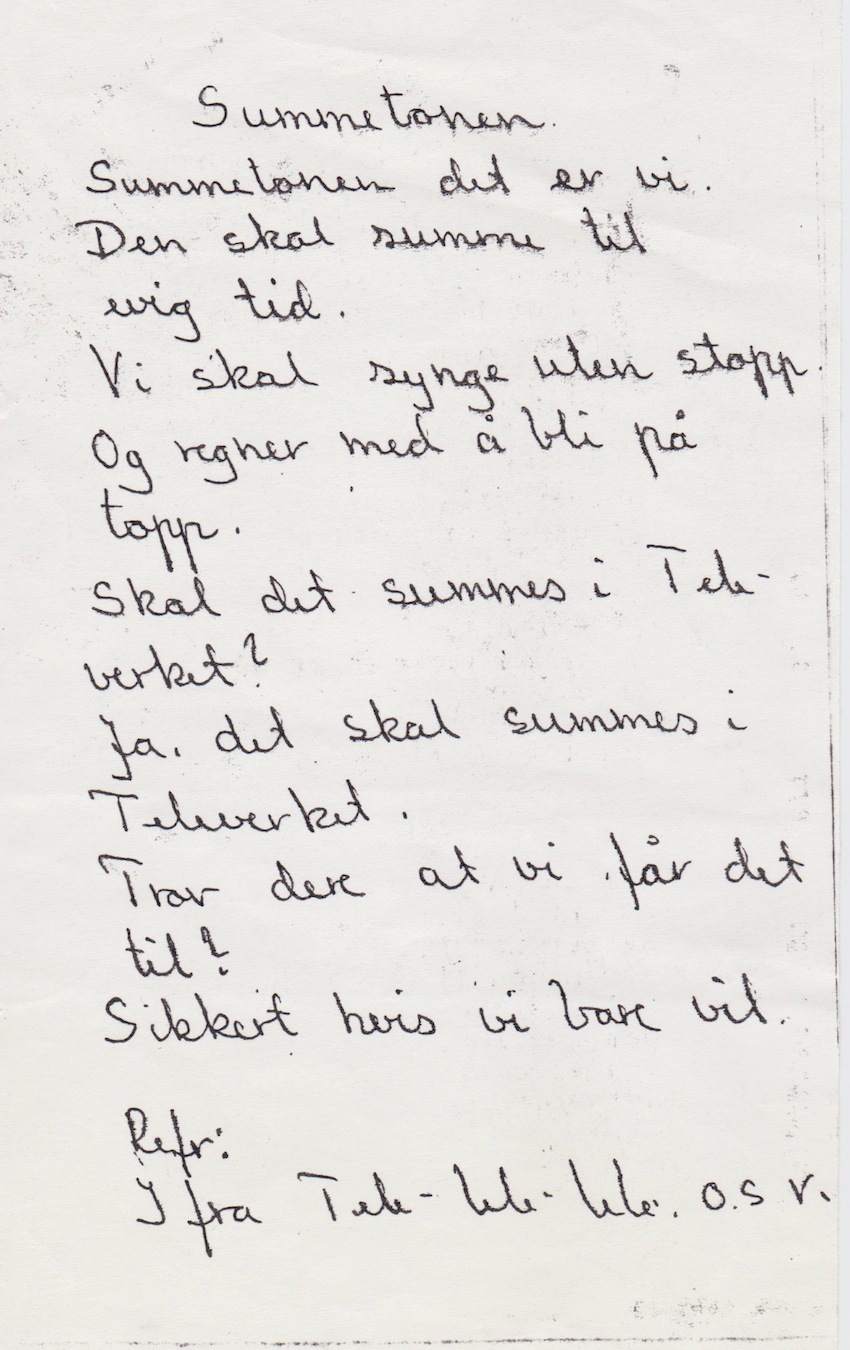 Summetonen.
Summetonen det er vi.
Den skal summe til
evig tid.
Vi skal synge uten stopp.
Og regner med å bli på
topp.
Skal det summes i Tele-
verket?
Ja, det skal summes i
Televerket.
Tror dere at vi får det
til?
Sikkert hvis vi bare vil.
Refr:
I fra Tele-lele-lele. o.s v.